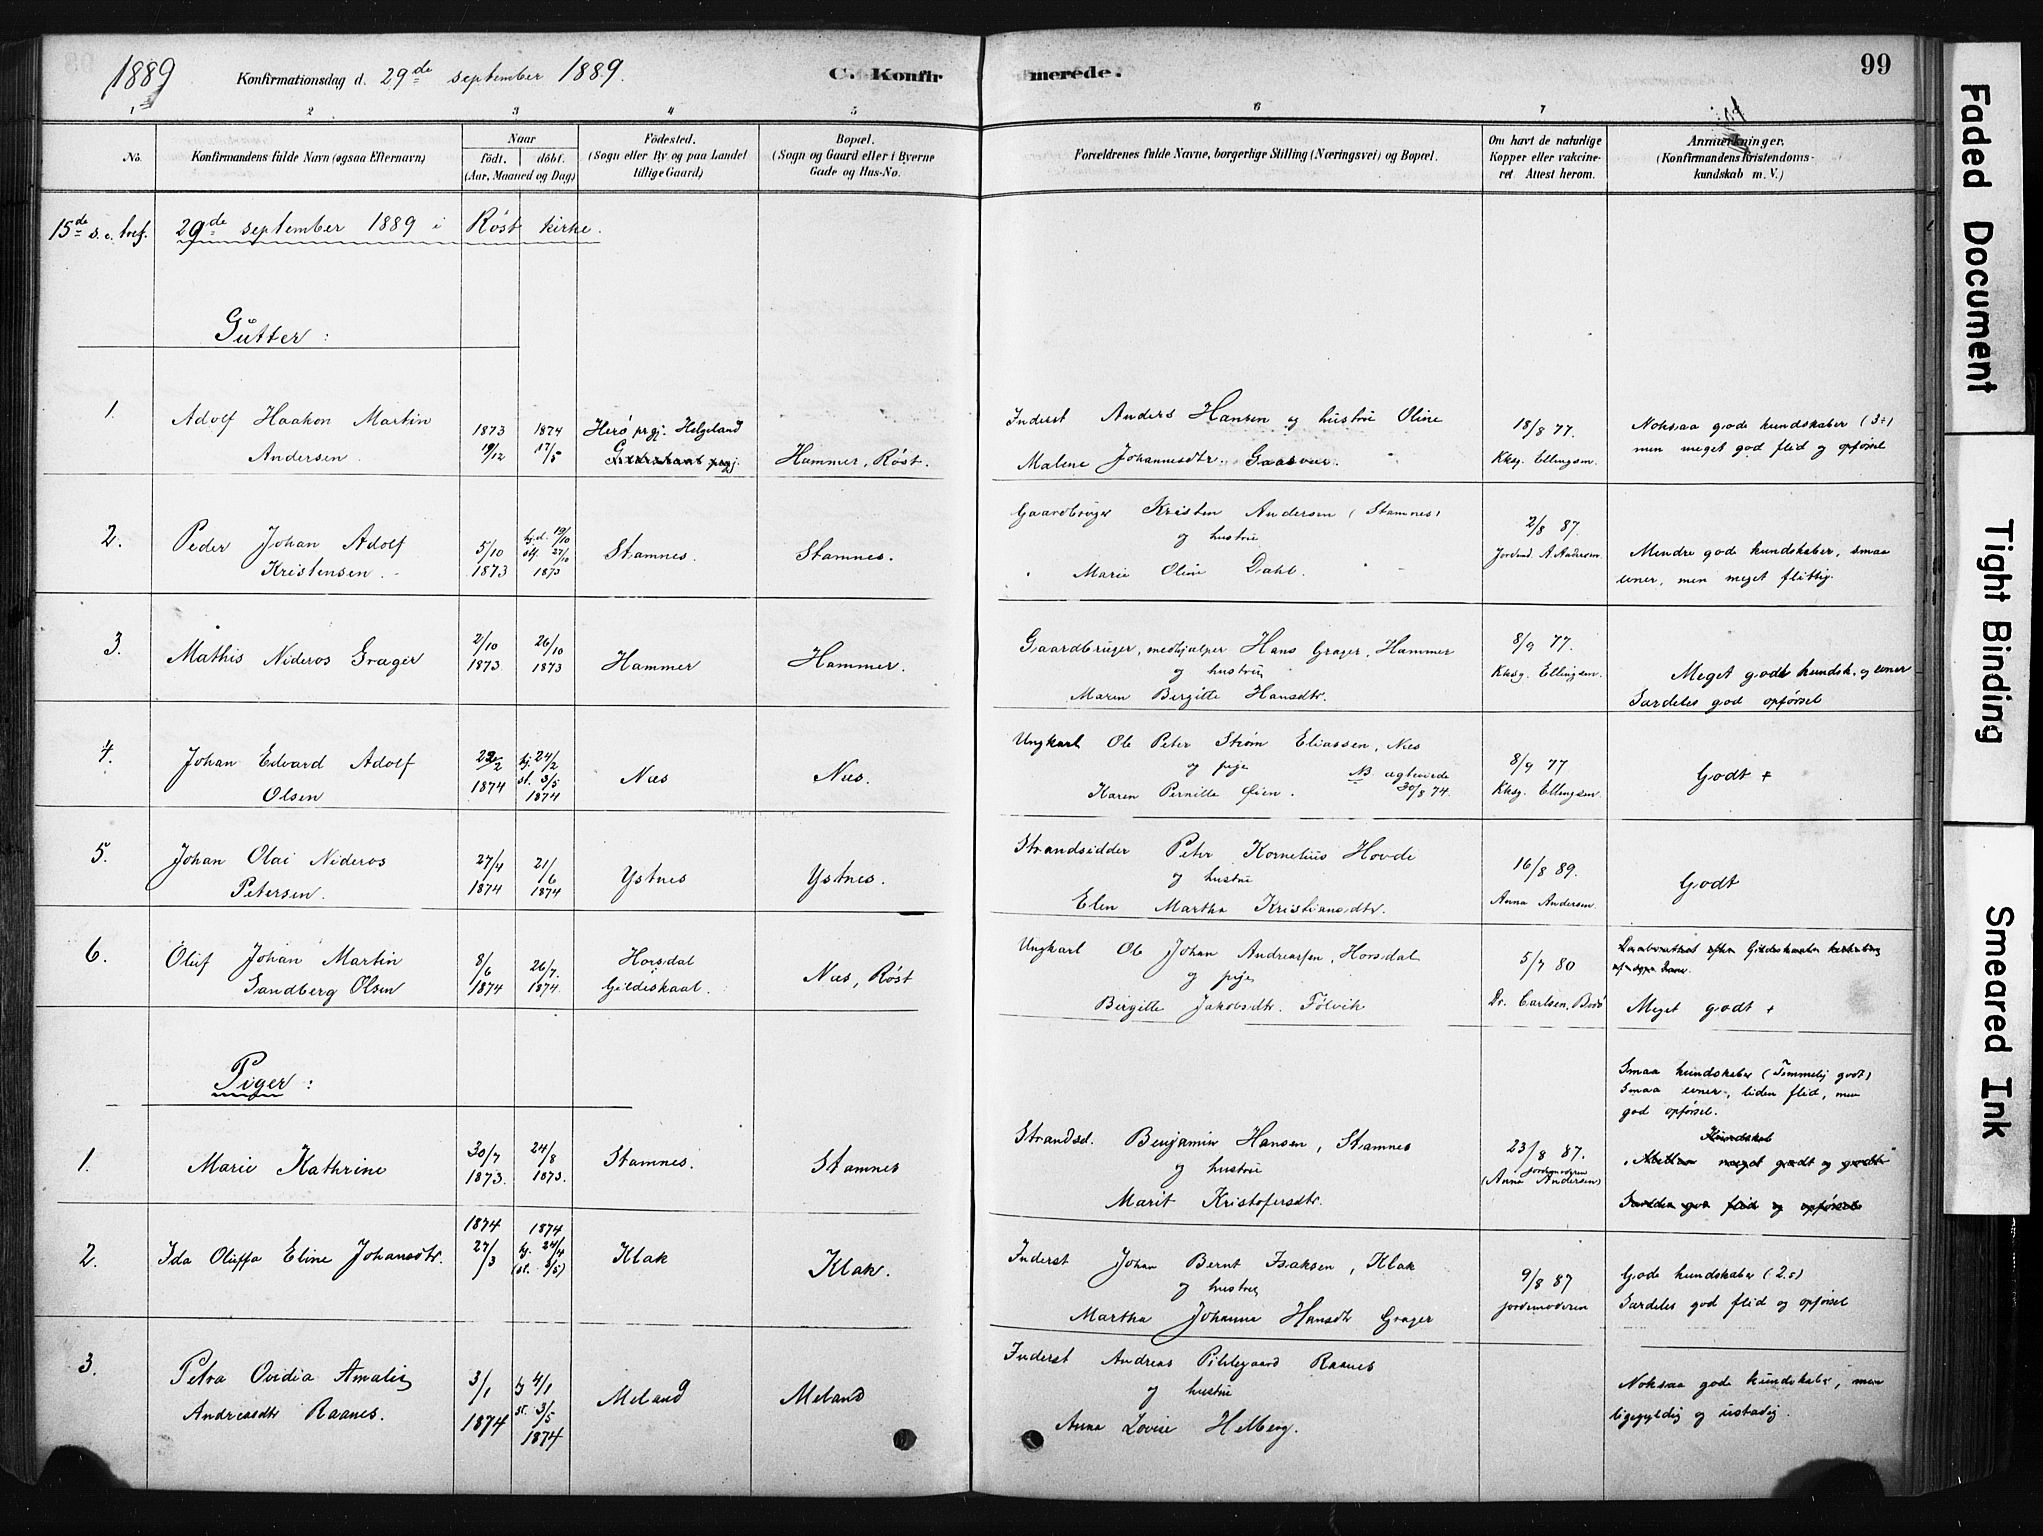 1889 Konfirmationsdag d. 29de september 1889. C. Konfirmerede. 99
1 2 3 4 5 6 7
No.
Konfirmandens fulde Navn (ogsaa Efternavn)
Naar
födt. döbt.
(Aar, Maaned og Dag)
Födested.
(Sogn eller By og paa Landet
tillige Gaard)
Bopæl.
(Sogn og Gaard eller i Byerne
Gade og Hus-No.
Forældrenes fulde Navne, borgerlige Stilling (Næringsvei) og Bopæl.
Om havt de naturlige
Kopper eller vakcine-
ret. Attest herom.
Anmærkninger.
(Konfirmandens Kristendoms-
kundskab m. V.)
15de s. e. tref. 29de september 1889 i Røst kirke.
Gutter:
1.
Adolf Haakon Martin
Andersen.
1873
19/12
1874
17/5
Herø prgj. Helgeland
Hammer, Røst.
Inderst Anders Hansen og hustru Oline
Malene Johannesdtr. Gaasvær.
18/8 77.
Kksg. Ellingsen.
Noksaa gode kundskaber (3+)
men meget god flid og opførsel
2.
Peder Johan Adolf
Kristensen.
5/10
1873
hj.d. 19/10
st. 27/10
1873
Stamnes.
Stamnes.
Gaardbruger Kristen Andersen (Stamnes)
og hustru
Marie Oline Dahl.
2/8 87.
Jordmd. A. Andersen
Mindre gode kundskaber, smaa
evner, men meget flittig.
3.
Mathis Nideros Grager
2/10
1873
26/10
1873
Hammer
Hammer.
Gaardbruger, medhjælper Hans Grager, Hammer
og hustru
Maren Birgitte Hansdtr.
8/9 77.
Kksg. Ellingsen.
Meget godt kundsk. og evner
Særdeles god opførsel
4.
Johan Edvard Adolf
Olsen
22/2
1874
hj. 24/2
st. 3/5
1874
Nes
Nes.
Ungkarl Ole Peter Strøm Eliassen, Nes
og pige NB ægteviede
Karen Pernille Øien. 30/8 74.
8/9 77
Kksg. Ellingsen.
Godt +
5.
Johan Olai Nideros
Petersen.
27/4
1874
21/6
1874
Ystnes
Ystnes.
Strandsidder Peter Kornelius Hovde
og hustru
Elen Martha Kristiansdtr.
16/8 89.
Anna Andersen.
Godt
6.
Oluf Johan Martin
Sandberg Olsen
8/6
1874
26/7.
1874.
Horsdal
Gildeskaal.
Nes, Røst
Ungkarl Ole Johan Andreassen, Horsdal
og pige
Birgitte Jakobsdtr. Følvik
5/7 80
Dr. Carlsen, Bodø
Meget godt +
Piger:
1.
Marie Kathrine
30/7
1873.
24/8
1873.
Stamnes.
Stamnes
Strandsd. Benjamin Hansen, Stamnes
og hustru
Marit Kristofersdtr.
23/8 87.
jordemoderen
(Anna Andersen)
Smaa kundskaber (Temmelig godt)
Smaa evner, liden flid, men
god opførsel.
2.
Ida Oluffa Eline Johansdtr.
1874
27/3
1874
hj. 24/4
(st. 3/5)
Klak
Klak.
Inderst Johan Bernt Isaksen, Klak
og hustru
Martha Johanna Hansdtr Grager
9/8 87
jordemoderen
Gode kundskaber (2.5)
Særdeles god flid og opførsel
3.
Petra Ovidia Amalie
Andreasdtr Raanes.
3/1
1874
hj 4/1
st. 3/5
1874
Meland
Meland
Inderst Andreas Pildegaard Raanes
og hustru
Anna Lovise Helberg.
Noksaa gode kundskaber, men
ligegyldig og ustadig.
Faded Document
Tight Binding
Smeared Ink